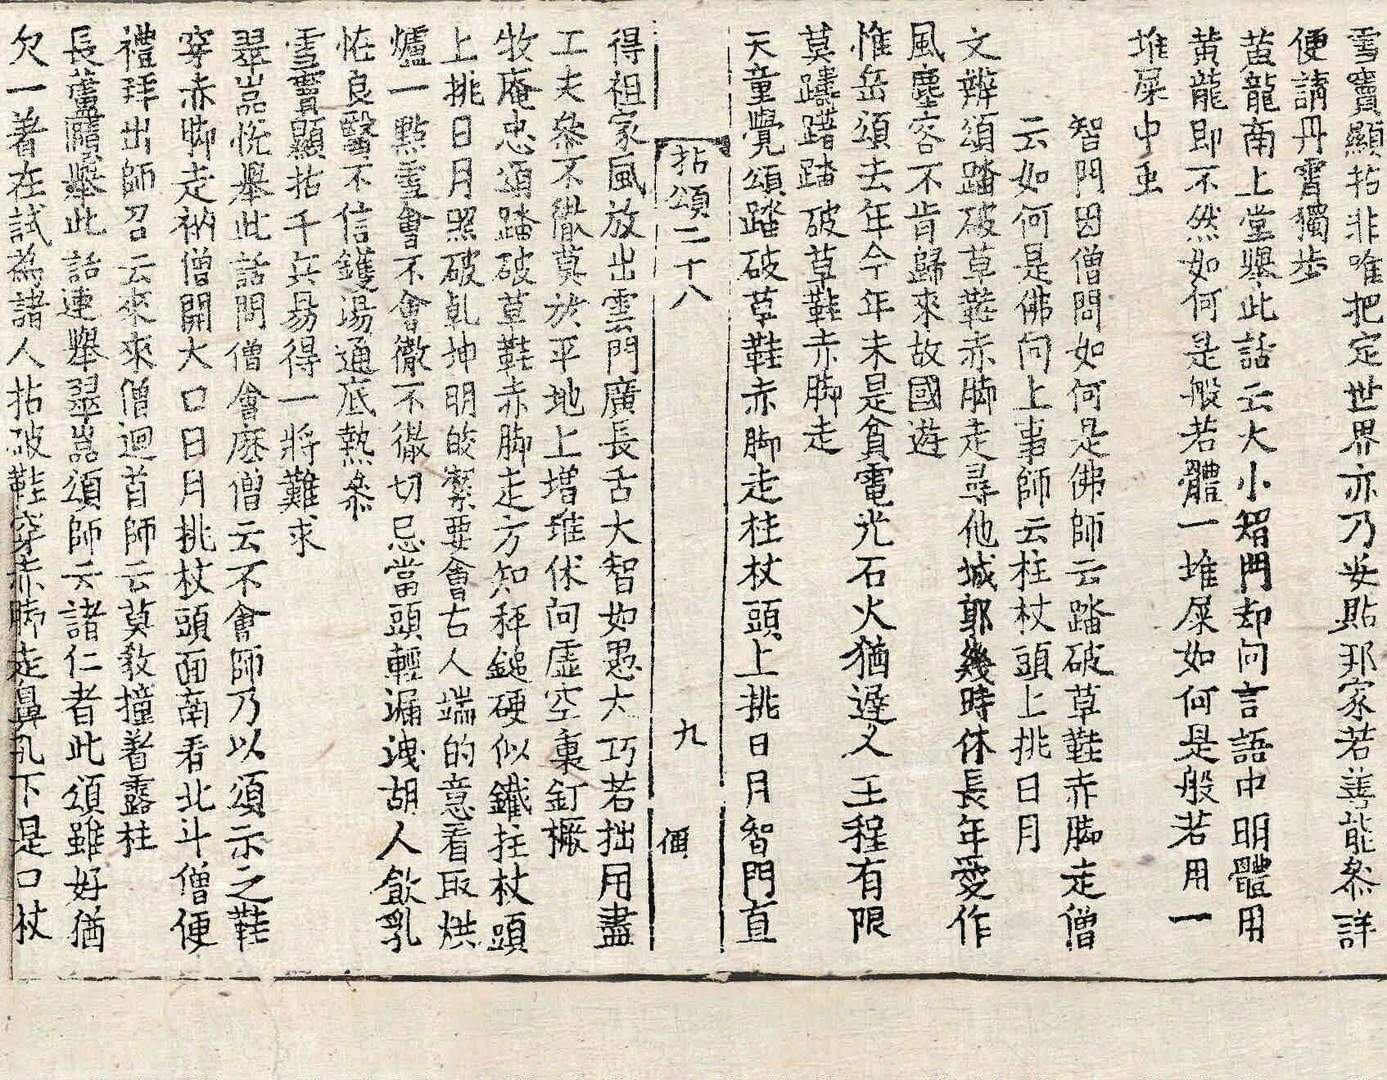 雪竇顯拈非唯把定世界亦乃安貼邦家若善能參詳
便請丹霄獨步
黃龍南上堂舉此話云大小智門却向言語中明體用
黃龍即不然如何是般若體一堆屎如何是般若用一
堆屎中虫
智門因僧問如何是佛師云踏破草鞋赤脚走僧
云如何是佛向上事師云柱杖頭上挑日月
文辨頌踏破草鞋赤脚走尋他城郭幾時休長年愛作
風塵客不肯歸來故國遊
惟岳頌去年今年未是貧電光石火猶遲乂王程有限
莫躊躇踏破草鞋赤脚走
天童覺頌踏破草鞋赤脚走柱杖頭上挑日月智門直
拈頌二十八 九
得祖家風放出雲門廣長舌大智如愚大巧若拙用盡
工夫參不徹莫於平地上增堆休向虛空裏釘橛
牧庵忠頌踏破草鞋赤脚走方知秤鎚硬似鐵拄杖頭
上挑日月照破乹坤明皎潔要會古人端的意看取烘
爐一點雪會不會徹不徹切忌當頭輕漏洩胡人飮乳
恠良醫不信鑊湯通底熱參
雪竇顯拈千兵易得一將難求
翠嵓悅舉此話問僧會麽僧云不會師乃以頌示之鞋
穿赤脚走衲僧開大口日月挑杖頭面南看北斗僧便
禮拜出師召云來來僧迴首師云莫教撞著露柱
長蘆賾舉此話連舉翠嵓頌師云諸仁者此頌雖好猶
欠一著在試爲諸人拈破鞋穿赤脚走鼻孔下是口杖